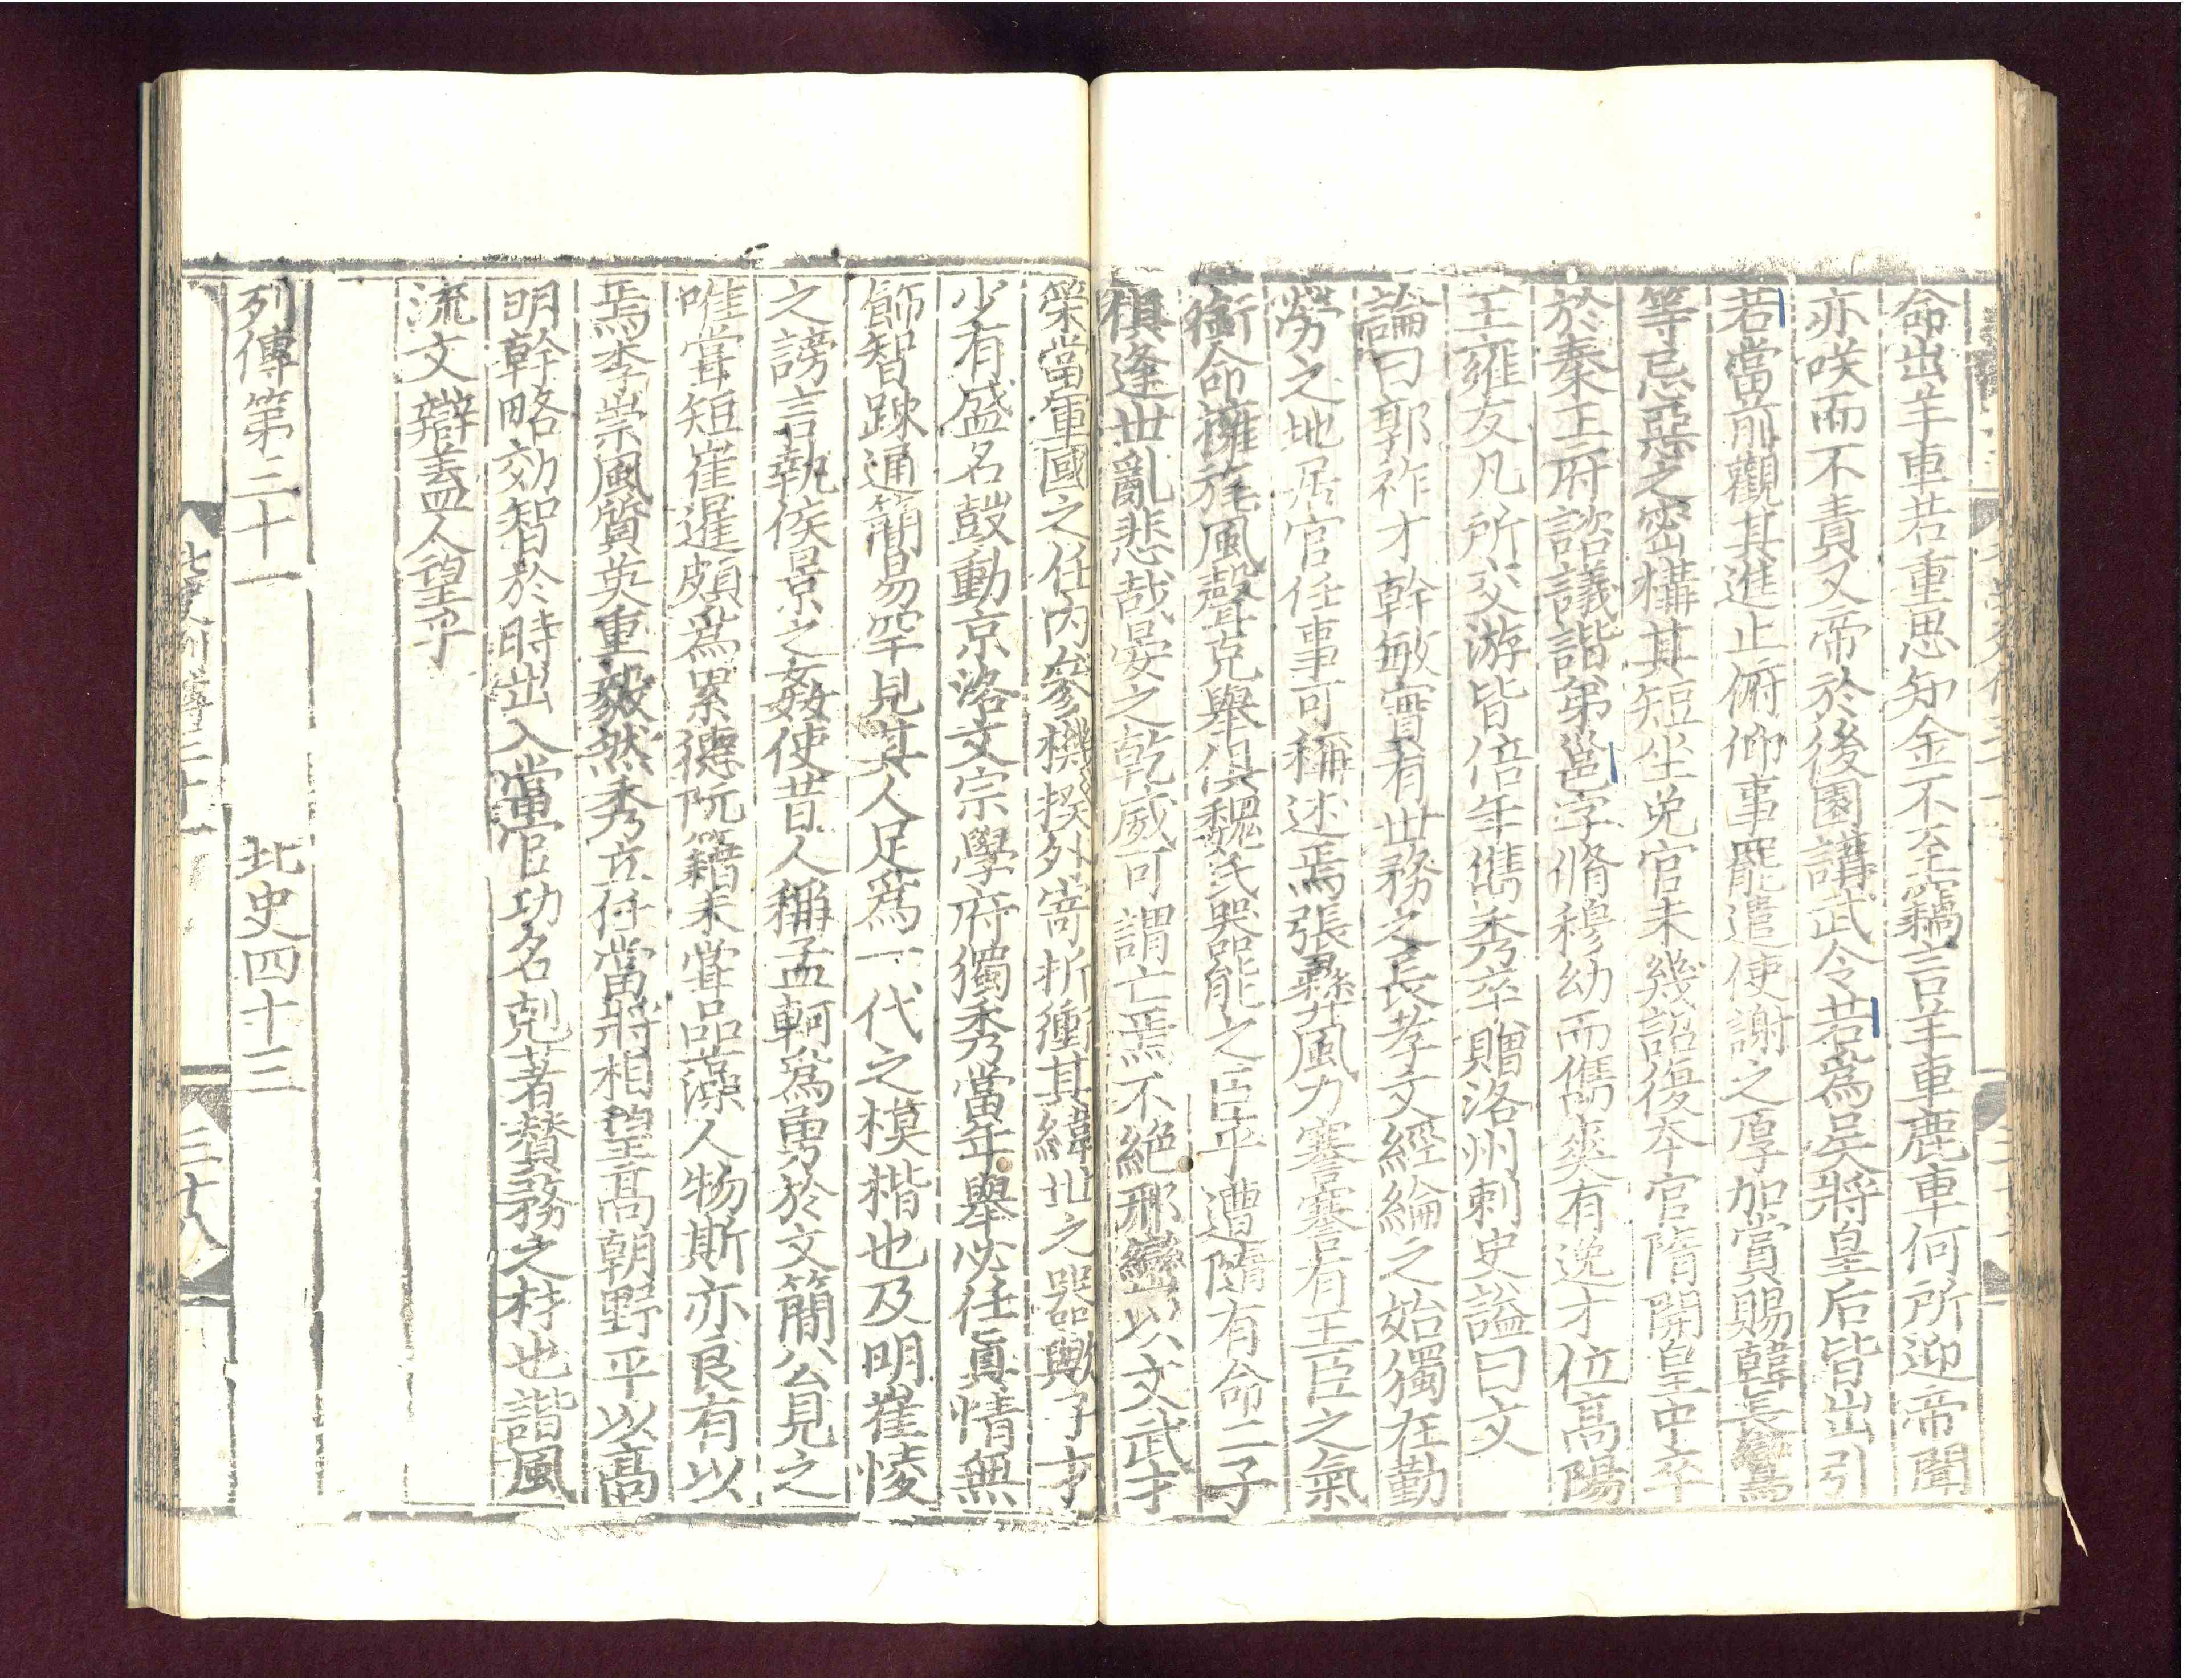 命出羊車若重思知金不至竊言羊車鹿車何所迎帝聞
亦咲而不責又帝於後園講武令若爲吴將皇后皆出引
若當前觀其進止俯仰事罷遣使謝之厚加賞賜韓長鸞
等忌惡之密構其短坐免官未幾詔復本官隋開皇中卒
於秦王府諮議諧弟邕字脩穆幼而儁爽有逸才位高陽
王雍友凡所交游皆倍年儁秀卒贈洛州刺史謚曰文
論曰郭祚才幹敏實有世務之長孝文經綸之始獨在勤
勞之地居官任事可稱述焉張彝風力謇謇有王臣之氣
銜命擁旄風聲克舉俱魏氏器能之臣乎遭隨有命二子
俱逢世亂悲哉晏之乾威可謂亡焉不絶邢巒以文武才
榮當軍國之任内參機揆外寄折衝其緯世之器歟子才
少有盛名鼓動京洛文宗學府獨秀當年舉必任真情無
飾智踈通簡易罕見其人足爲一代之模楷也及明崔㥄
之謗言執侯景之姦使昔人稱孟軻爲勇於文簡公見之
唯嘗短崔暹頗爲累德阮籍未嘗品藻人物斯亦良有以
焉李崇風質英重毅然秀立任當將相望高朝野平以高
明幹略効智於時出入當官功名剋著贊務之材也諧風
流文辯蓋人望乎
列傳第三十一 北史四十三
北史列傳三十一 三十八